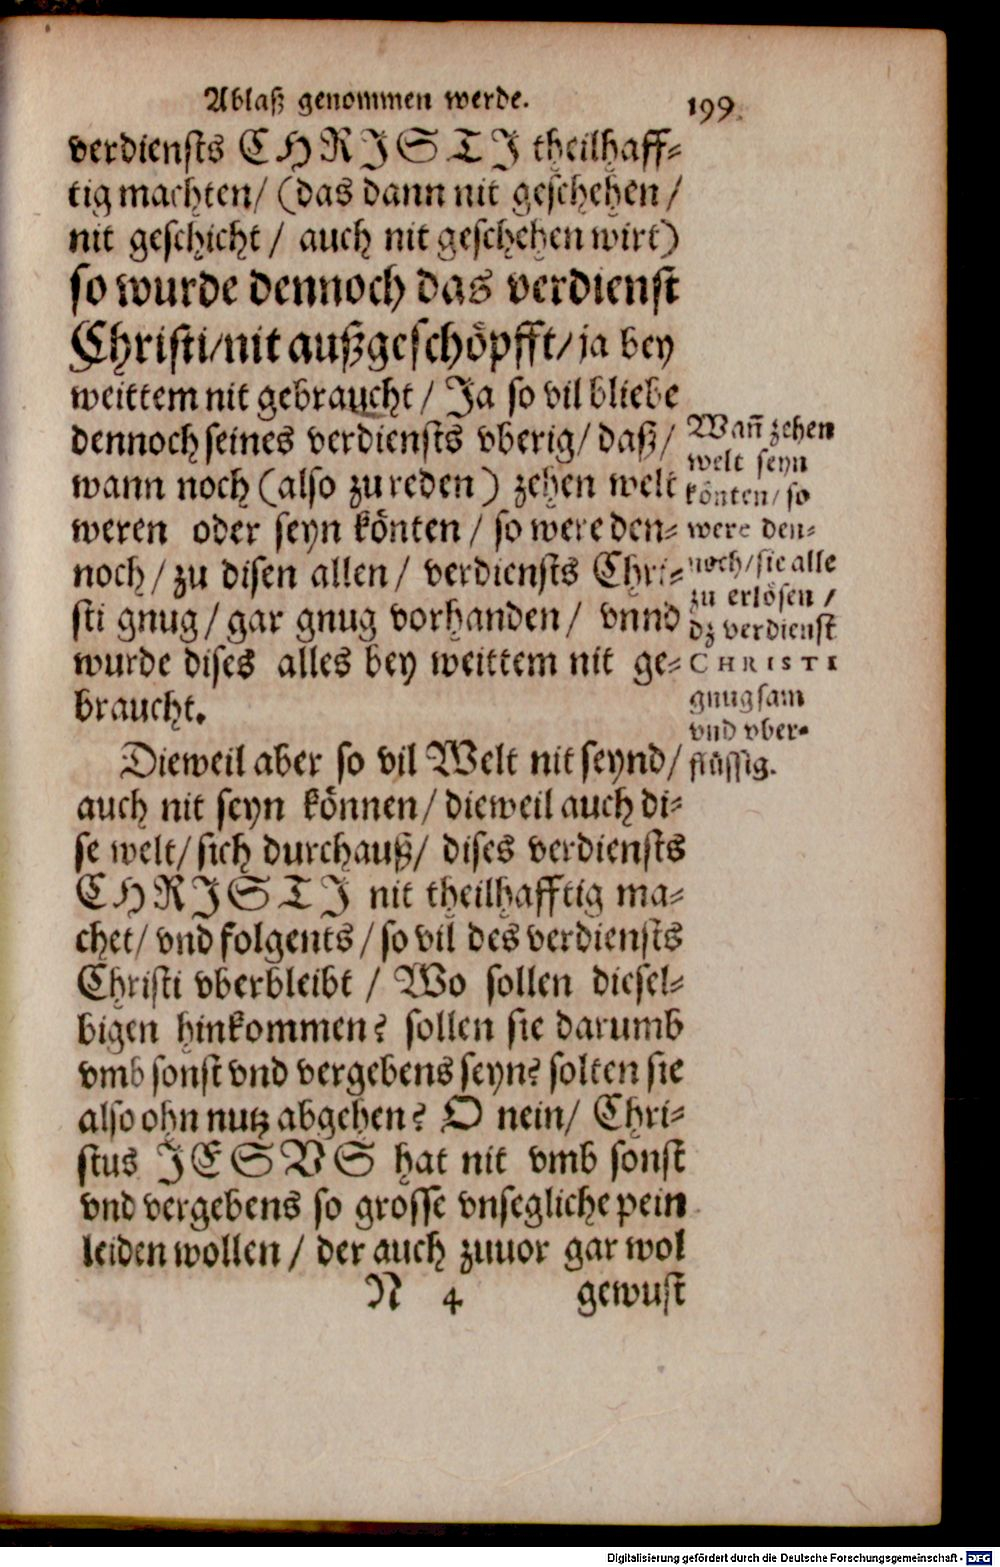 Ablaß genommen werde. 199
verdiensts CHRISTI theilhaff-
tig machten/ (das dann nit geschehen /
nit geschicht / auch nit geschehen wirt)
so wurde dennoch das verdienst
Christi/nit außgeschöpfft/ ja bey
weittem nit gebraucht / Ja so vil bliebe
dennoch seines verdiensts vberig/ daß/
wann noch (also zu reden) zehen welt
weren oder seyn könten / so were den-
noch / zu disen allen / verdiensts Chri-
sti gnug / gar gnug vorhanden / vnnd
wurde dises alles bey weittem nit ge-
braucht.
Wan̄ zehen
welt seyn
könten/ so
were den-
noch/sie alle
zu erlösen /
dz verdienst
CHRISTI
gnugsam
vnd vber-
flüssig.
Dieweil aber so vil Welt nit seynd/
auch nit seyn können / dieweil auch di-
se welt/ sich durchauß/ dises verdiensts
CHRISTI nit theilhafftig ma-
chet/ vnd folgents / so vil des verdiensts
Christi vberbleibt / Wo sollen diesel-
bigen hinkommen? sollen sie darumb
vmb sonst vnd vergebens seyn? solten sie
also ohn nutz abgehen? O nein/ Chri-
stus JESVS hat nit vmb sonst
vnd vergebens so grosse vnsegliche pein
leiden wollen / der auch zuuor gar wol
N 4 gewust
Digitalisierung gefördert durch die Deutsche Forschungsgemeinschaft - DFG